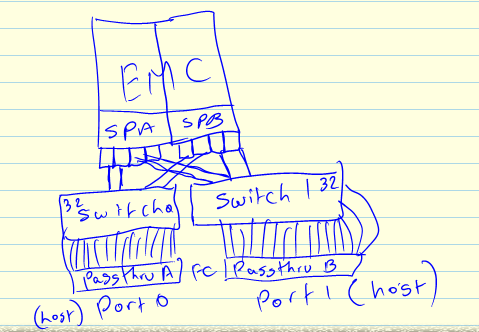 EMC
SPA SPB
32 Switch 0 Switch 1 32
Passthru A FC Passthru B
(host) Port 0 Port 1 (host)